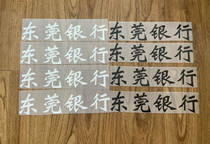 东莞银行 东莞银行
东莞银行 东莞银行
东莞银行 东莞银行
东莞银行 东莞银行